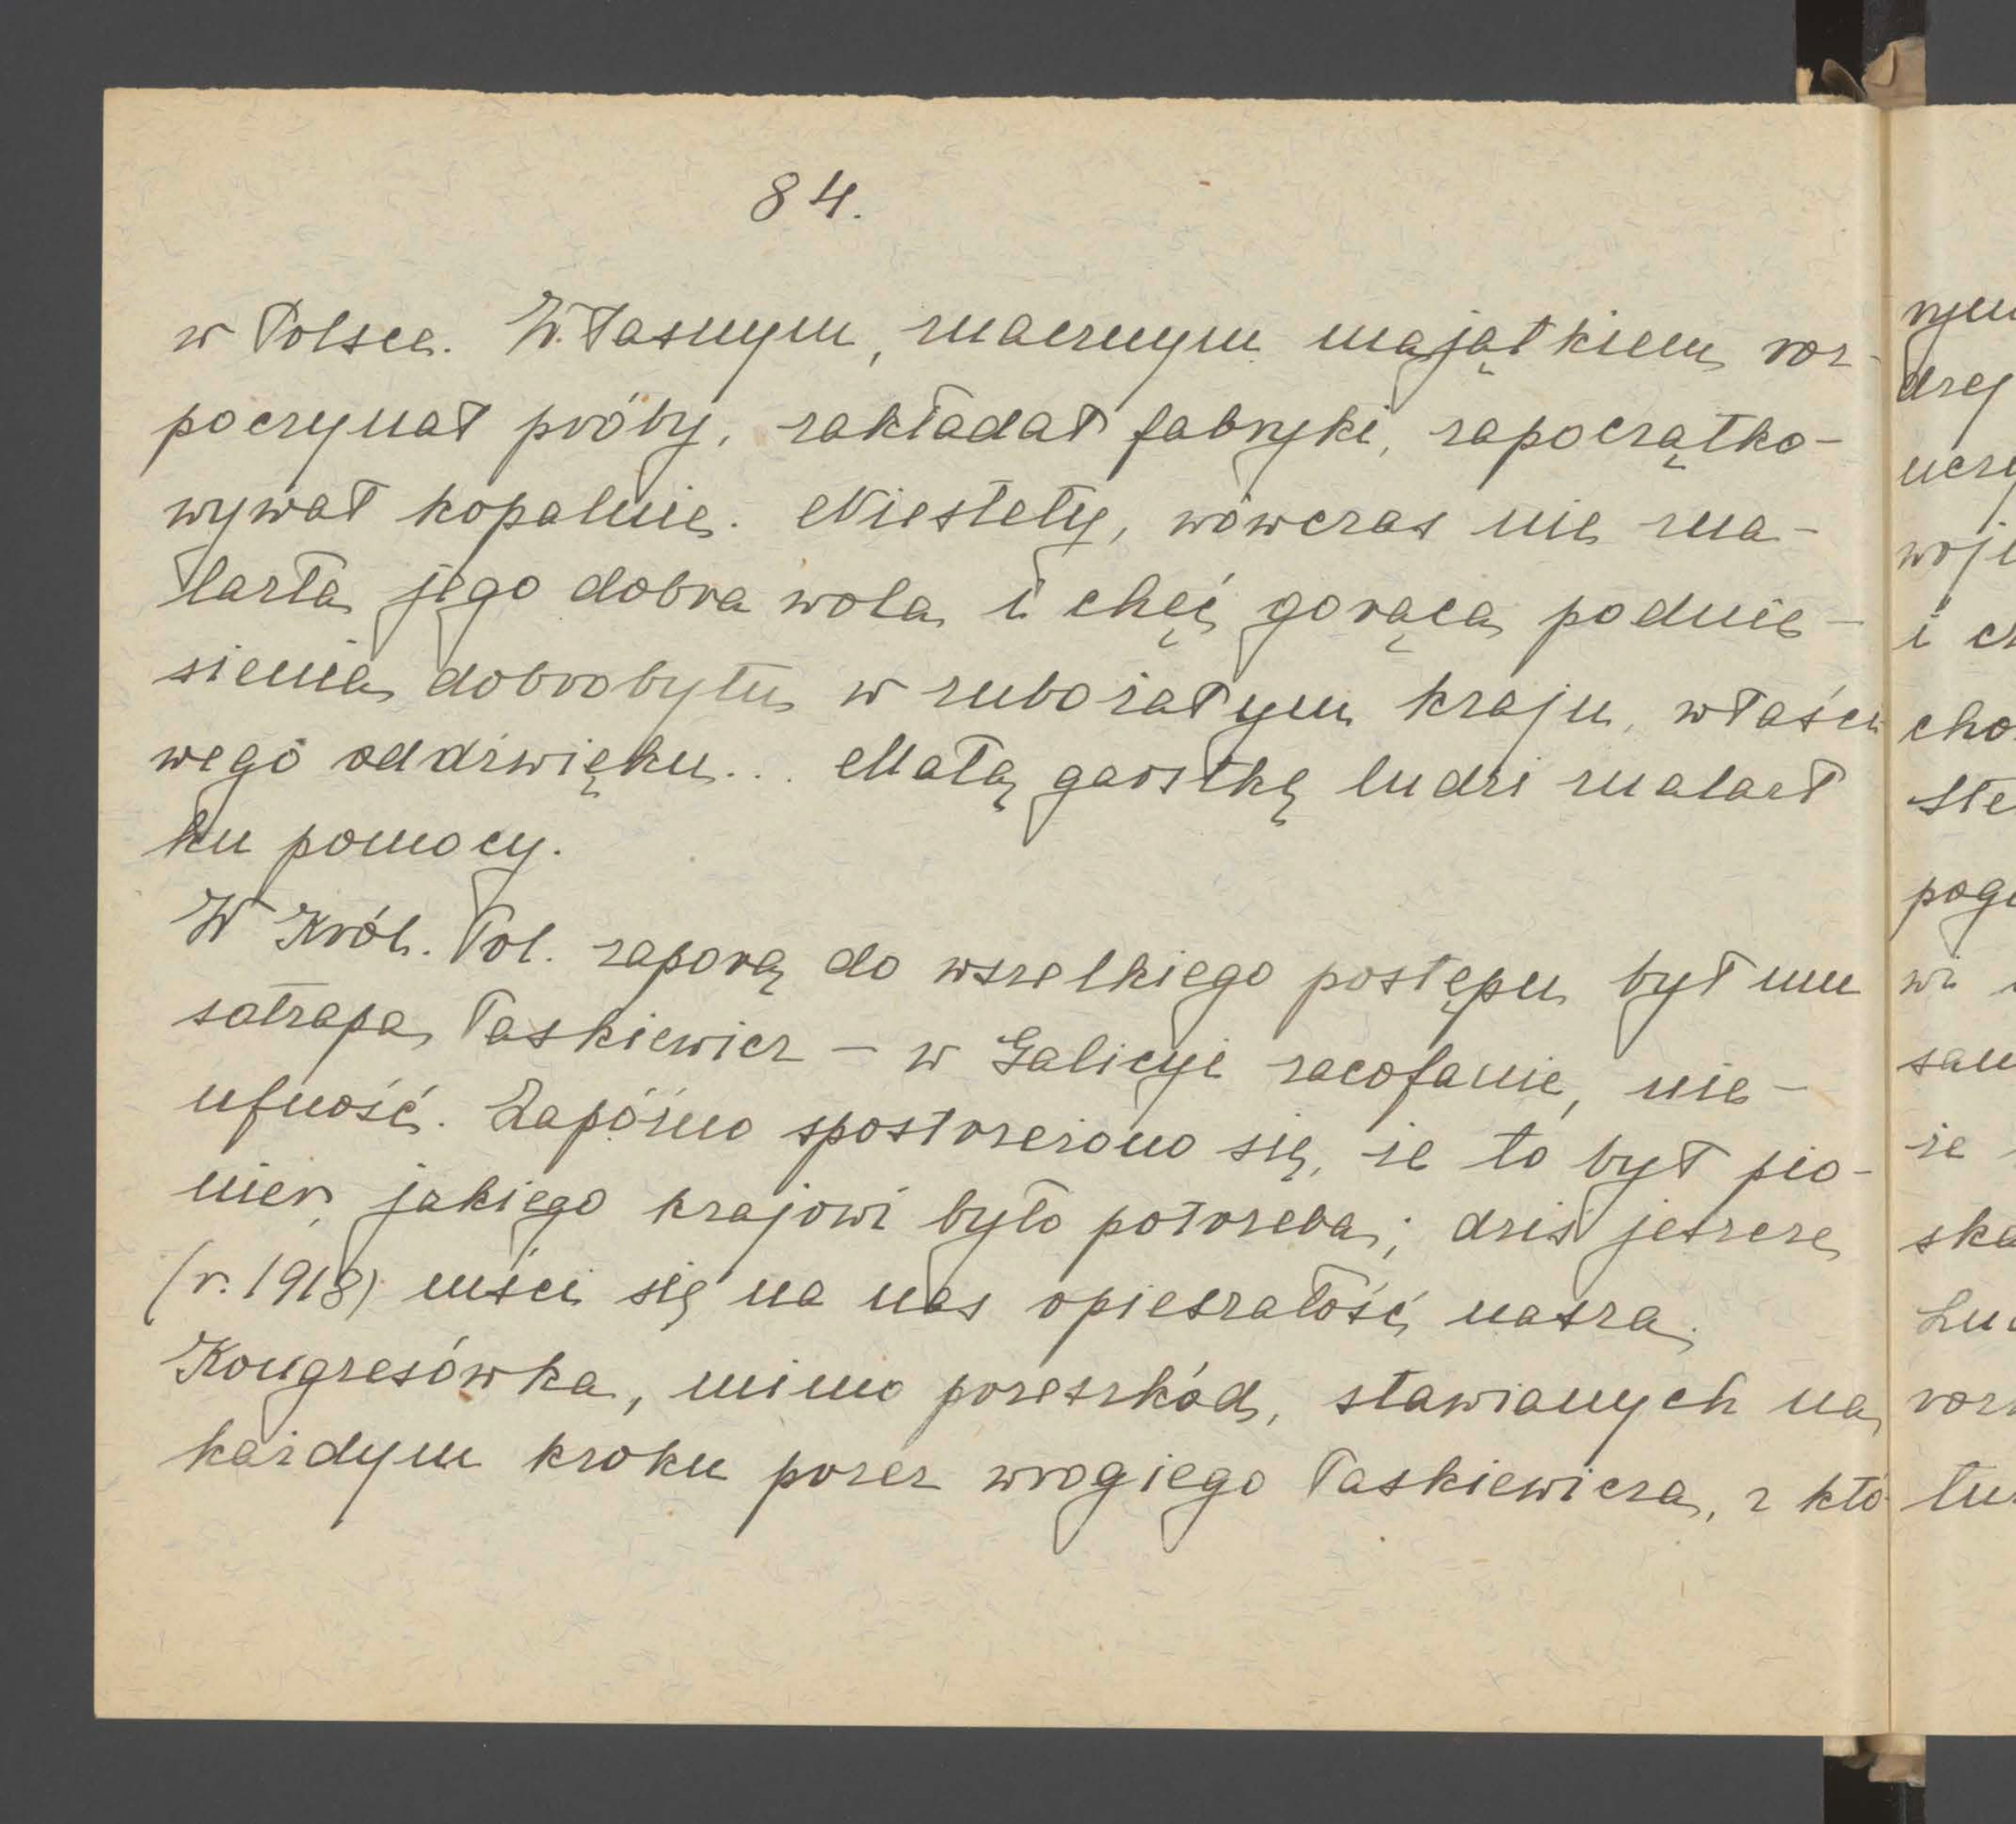 84.
w Polsce. Własnym, znacznym majątkiem roz-
poczynał próby, zakładał fabryki, zapocząłko-
wywał kopalnie. Niestety, wówczas nie zna-
lazła jego dobra wola i chęć gorąca podnie-
sienia dobrobytu w zubożałym kraju, właści
wego oddźwięku... Małą garstkę ludzi znalazł
ku pomocy.
W Król. Pol. zaporą do wszelkiego postępu był mu
satrapa Paskiewicz - w Galicyi zacofanie, nie-
ufność. Zapóźno spostrzeżono się, że to był pio-
nier, jakiego krajowi było potrzeba; dziś jeszcze
(r. 1918) mści się na nas opieszałość nasza.
Kongresówka, mimo przeszkód, stawianych na
każdym kroku przez wrogiego Paskiewicza, z któ